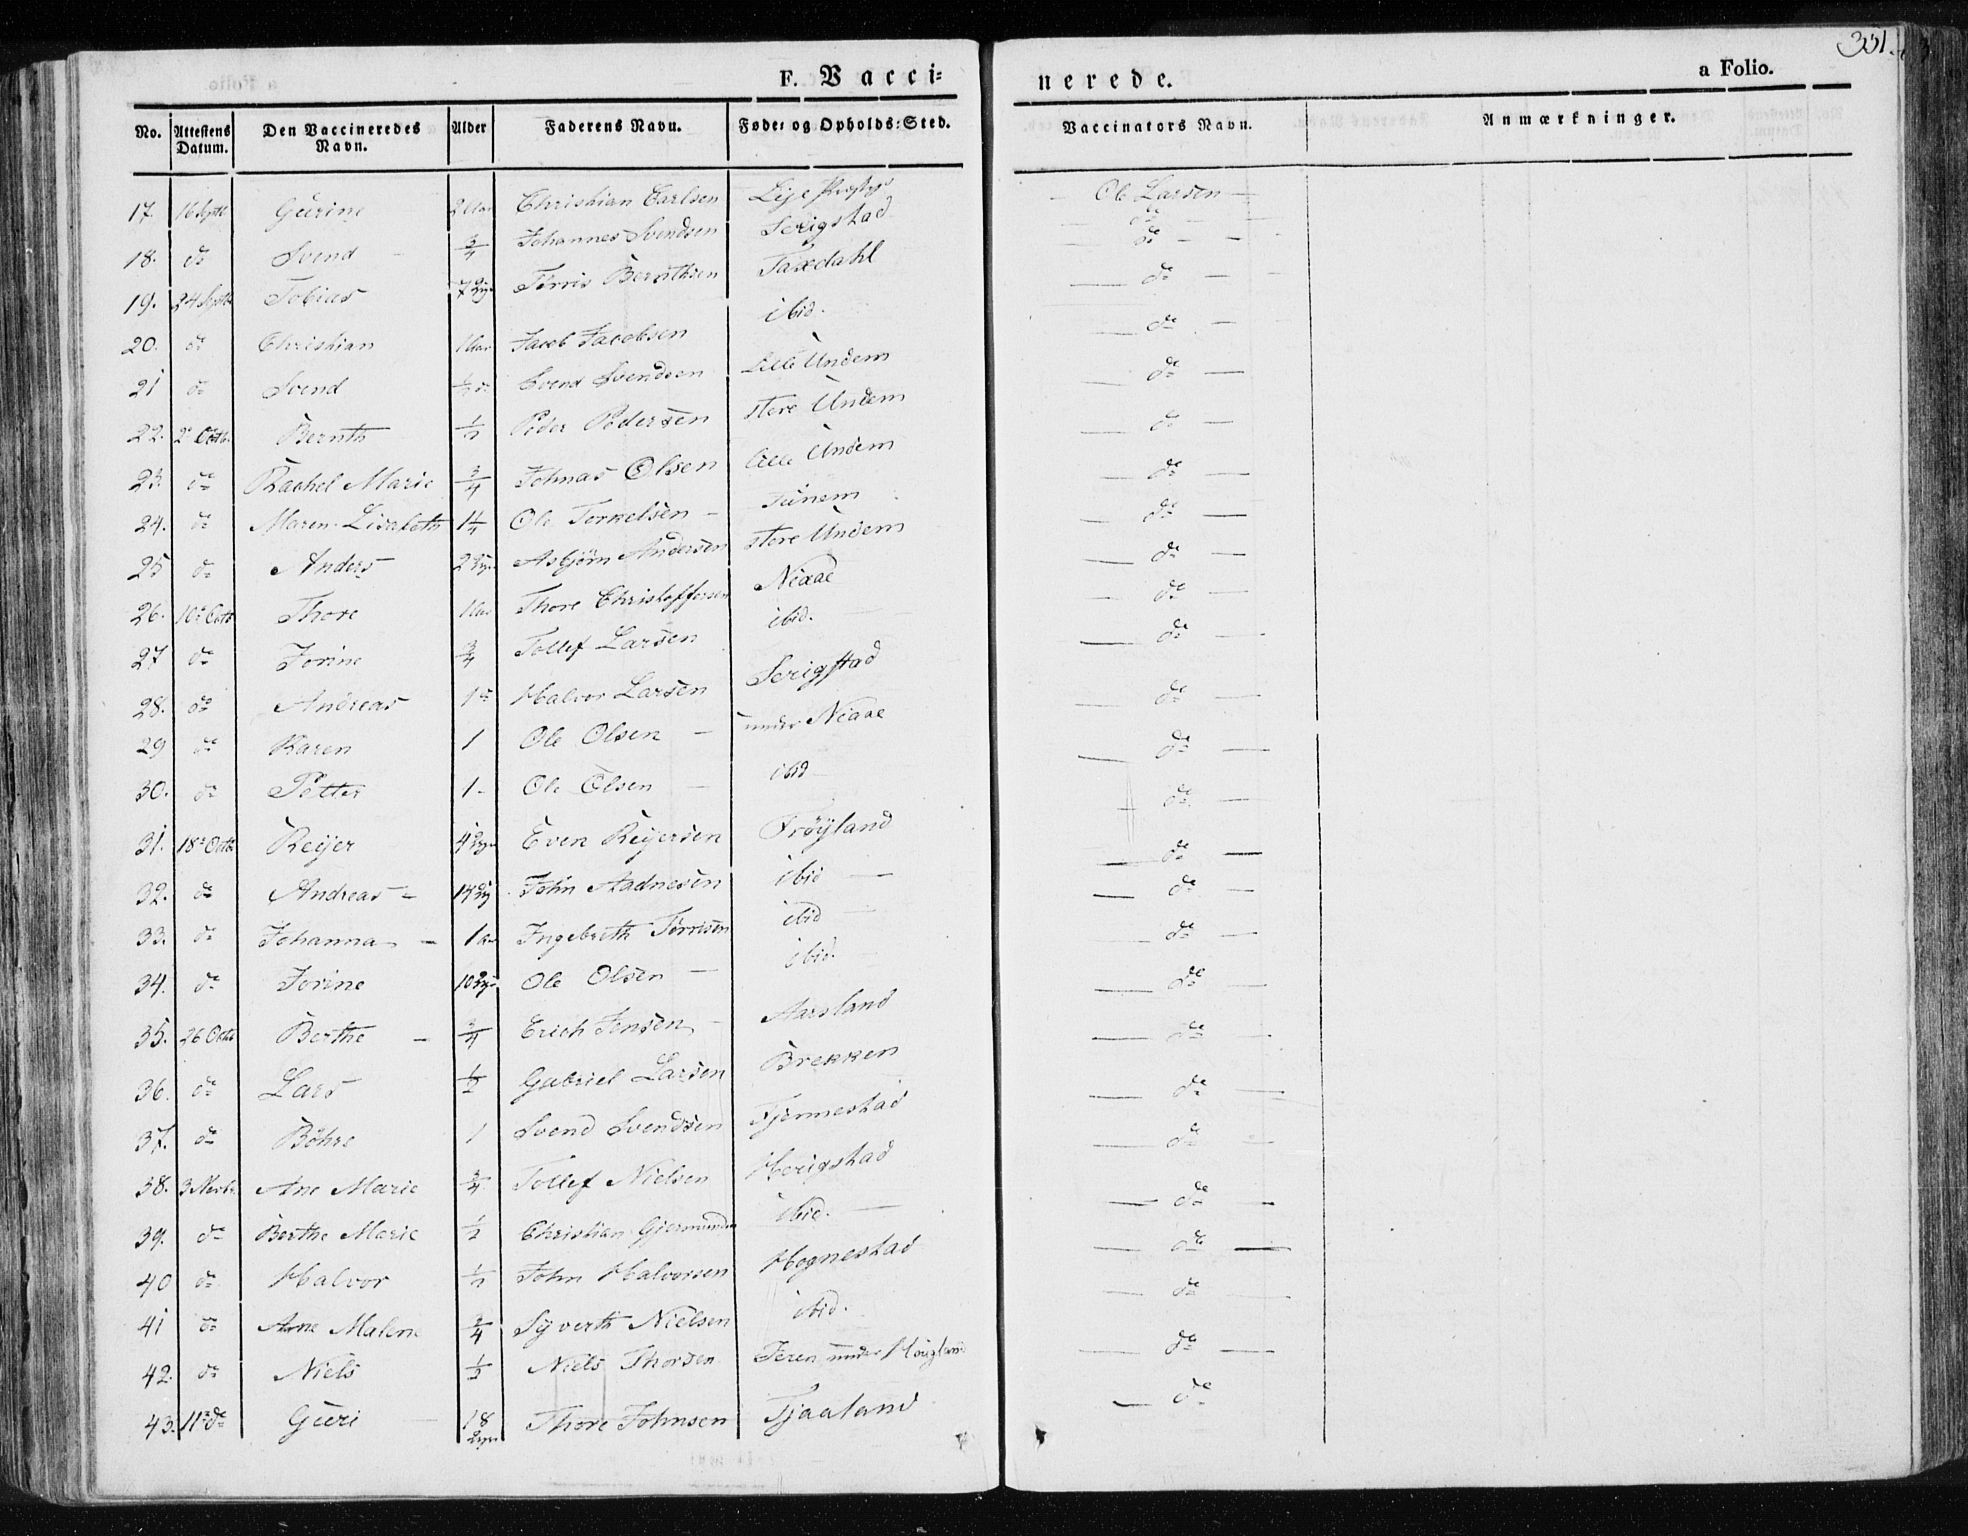 331.
F. Vacci= nerede. a Folio.
No. Attestens Datum. Den Vaccineredes Navn. Alder Faderens Navn. Føde= og Opholds=Sted. Vaccinators Navn. Anmærkninger.
17. 16 Septb Gurine 2 Aar Christian Carlsen Lÿe Ole Larsen
18. do Svend 3/4 Johannes Svendsen Serigstad do
19. 24 Septb Tobias 7 Tørris Bernthsen Taxedahl do
20. do Christian 1 Aar Jacob Jacobsen ibid. do
21 do Svend 1/2 do Svend Svendsen Lille Undem do
22. 2 Octb. Bernth 1/2 Peder Pedersen store Undem do
23. do Rachel Marie 3/4 Johnas Olsen Lille Undem do
24. do Maren Lisabeth 1 1/4 Ole Terkelsen Tunem do
25 do Anders 2 Asbjørn Andersen store Undem do
26. 10 Octb Thore 1 Aar Thore Christoffersen Niaae do
27 do Jorine 3/4 Tollef Larsen ibid. do
28. do Andreas 1 Halvor Larsen Serigstad do
29 do Karen 1 Ole Olsen under Niaae do
30. do Petter 1 Ole Olsen ibid do
31. 18 Octb Reÿer 4 Even Reÿersen Frøÿland do
32. do Andreas 14 John Aadnesen ibid do
33. do Johanna 1 Aar Ingebreth Tørresen ibid do
34. do Jorine 10 Ole Olsen ibid. do
35. 26 Octb Berthe 3/4 Erich Jensen Aarsland do
36. do Lars 1/2 Gabriel Larsen Brekken do
37. do Bøhre 1 Svend Svendsen Tjennestad do
38. 3 Novbr. Ane Marie 3/4 Tollef Nielsen Herigstad do
39. do Berthe Marie 1/2 Christian Gjermundsen ibid. do
40 do Halvor 1/2 John Halvorsen Hognestad do
41 do Ane Malene 3/4 Syverth Nielsen ibid. do
42. do Niels 1/2 Niels Thorsen Teren under Hougland do
43. 11 do Guri 18 Thore Johnsen Tjaaland do